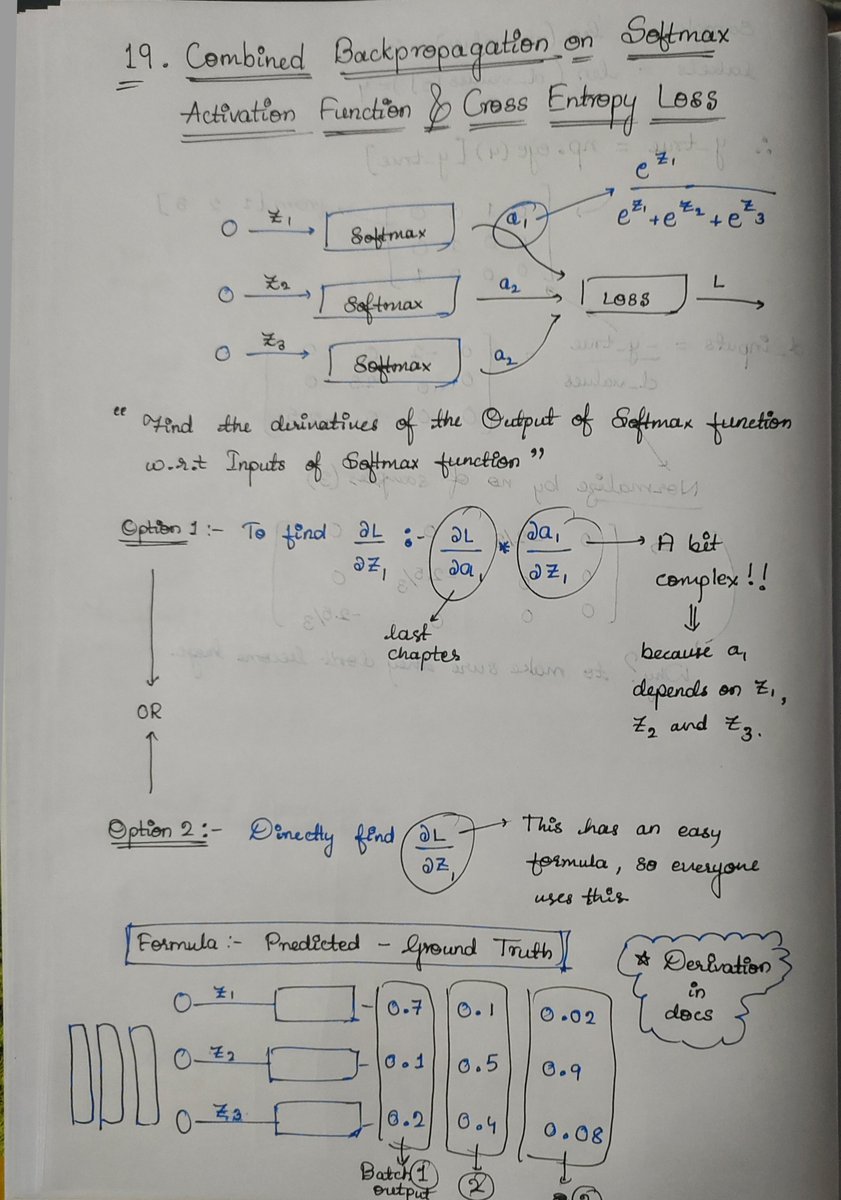 19. Combined Backpropagation on Softmax
Activation Function & Cross Entropy Loss
z1 Softmax a1 e^z1 / e^z1 + e^z2 + e^z3
z2 Softmax a2 Loss L
z3 Softmax a2
“ Find the derivatives of the Output of Softmax function
w.r.t Inputs of Softmax function ”
Option 1 :- To find ∂L/∂z1 :- ∂L/∂a1 * ∂a1/∂z1 → A bit
complex!!
last
chapter
because a1
depends on z1,
z2 and z3.
OR
Option 2 :- Directly find ∂L/∂z1 → This has an easy
formula, so everyone
uses this
Formula :- Predicted - Ground Truth
* Derivation
in
docs
z1 0.7 0.1 0.02
z2 0.1 0.5 0.9
z3 0.2 0.4 0.08
Batch 1 2
output